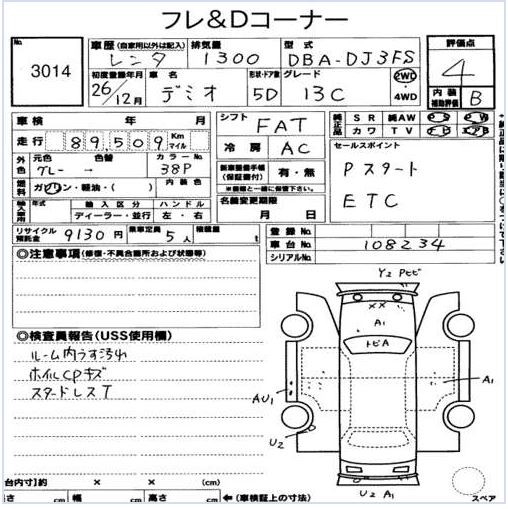 フレ&Dコーナー
No. 3014
車歴 (自家用以外は記入) レンタ
排気量 1300
型式 DBA-DJ3FS
評価点 4
初度登録年月 26/12月
車名 デミオ
形状・ドア数 5D
グレード 13C
2WD・4WD
内装補助評価 B
車検 年 月
シフト FAT
純正品 SR 純AW PS PW
カワ TV ナビ エアB
走行 89,509 Km マイル
冷房 AC
セールスポイント
Pスタート
ETC
外色 元色 グレー → 色替 カラーNo. 38P
新車整備手帳(保証書付) 有・無
※車検証と一緒に保管下さい。
燃料 ガソリン・軽油・( ) 内装色
名義変更期限 月 日
輸入車用 年式 輸入区分 ハンドル
ディーラー・並行 左・右
リサイクル預託金 9130円 乗車定員 5人 積載量 t
登録No.
車台No. 108234
シリアルNo.
◎注意事項(修復・不具合箇所および状態等)
◎検査員報告(USS使用欄)
ルーム内うす汚れ
ホイルCPキズ
スタッドレスT
Y2 Pヒビ
××
A1
トビA
AU1
A1
U2
U2 A1
スペア
台内寸)約 × × (cm)
さ (cm) 幅 (cm) 高さ (cm) ←(車検証上の寸法)